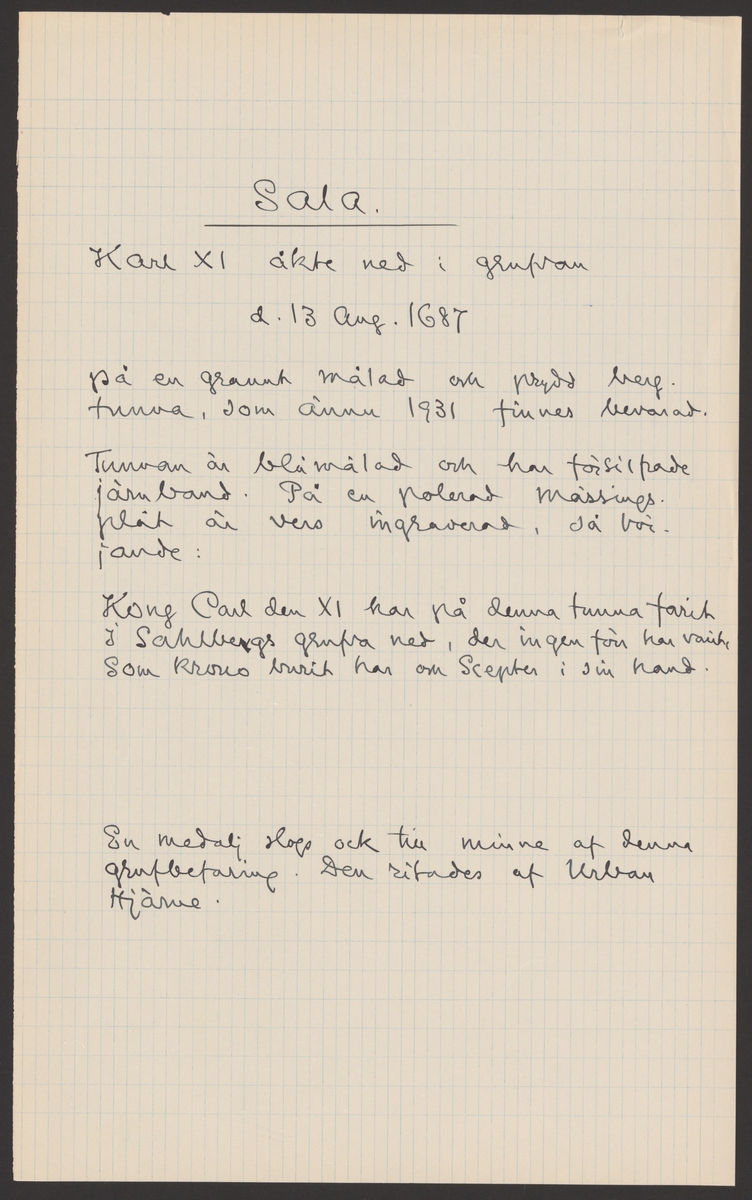 Sala.
Karl XI åkte ned i grufvan
d. 13 Aug. 1687
på en grannt målad och prydd berg-
tunna, som ännu 1931 finnes bevarad.
Tunnan är blåmålad och har försilfrade
järnband. På en polerad mässings-
plåt är vers ingraverad, så bör-
jande:
Kong Carl den XI har på denna tunna farit
I Sahlbergs grufva ned, der ingen för har varit,
Som krono burit har om Scepter i sin hand.
En medalj slogs ock till minne af denna
grufbefaring. Den ritades af Urban
Hjärne.